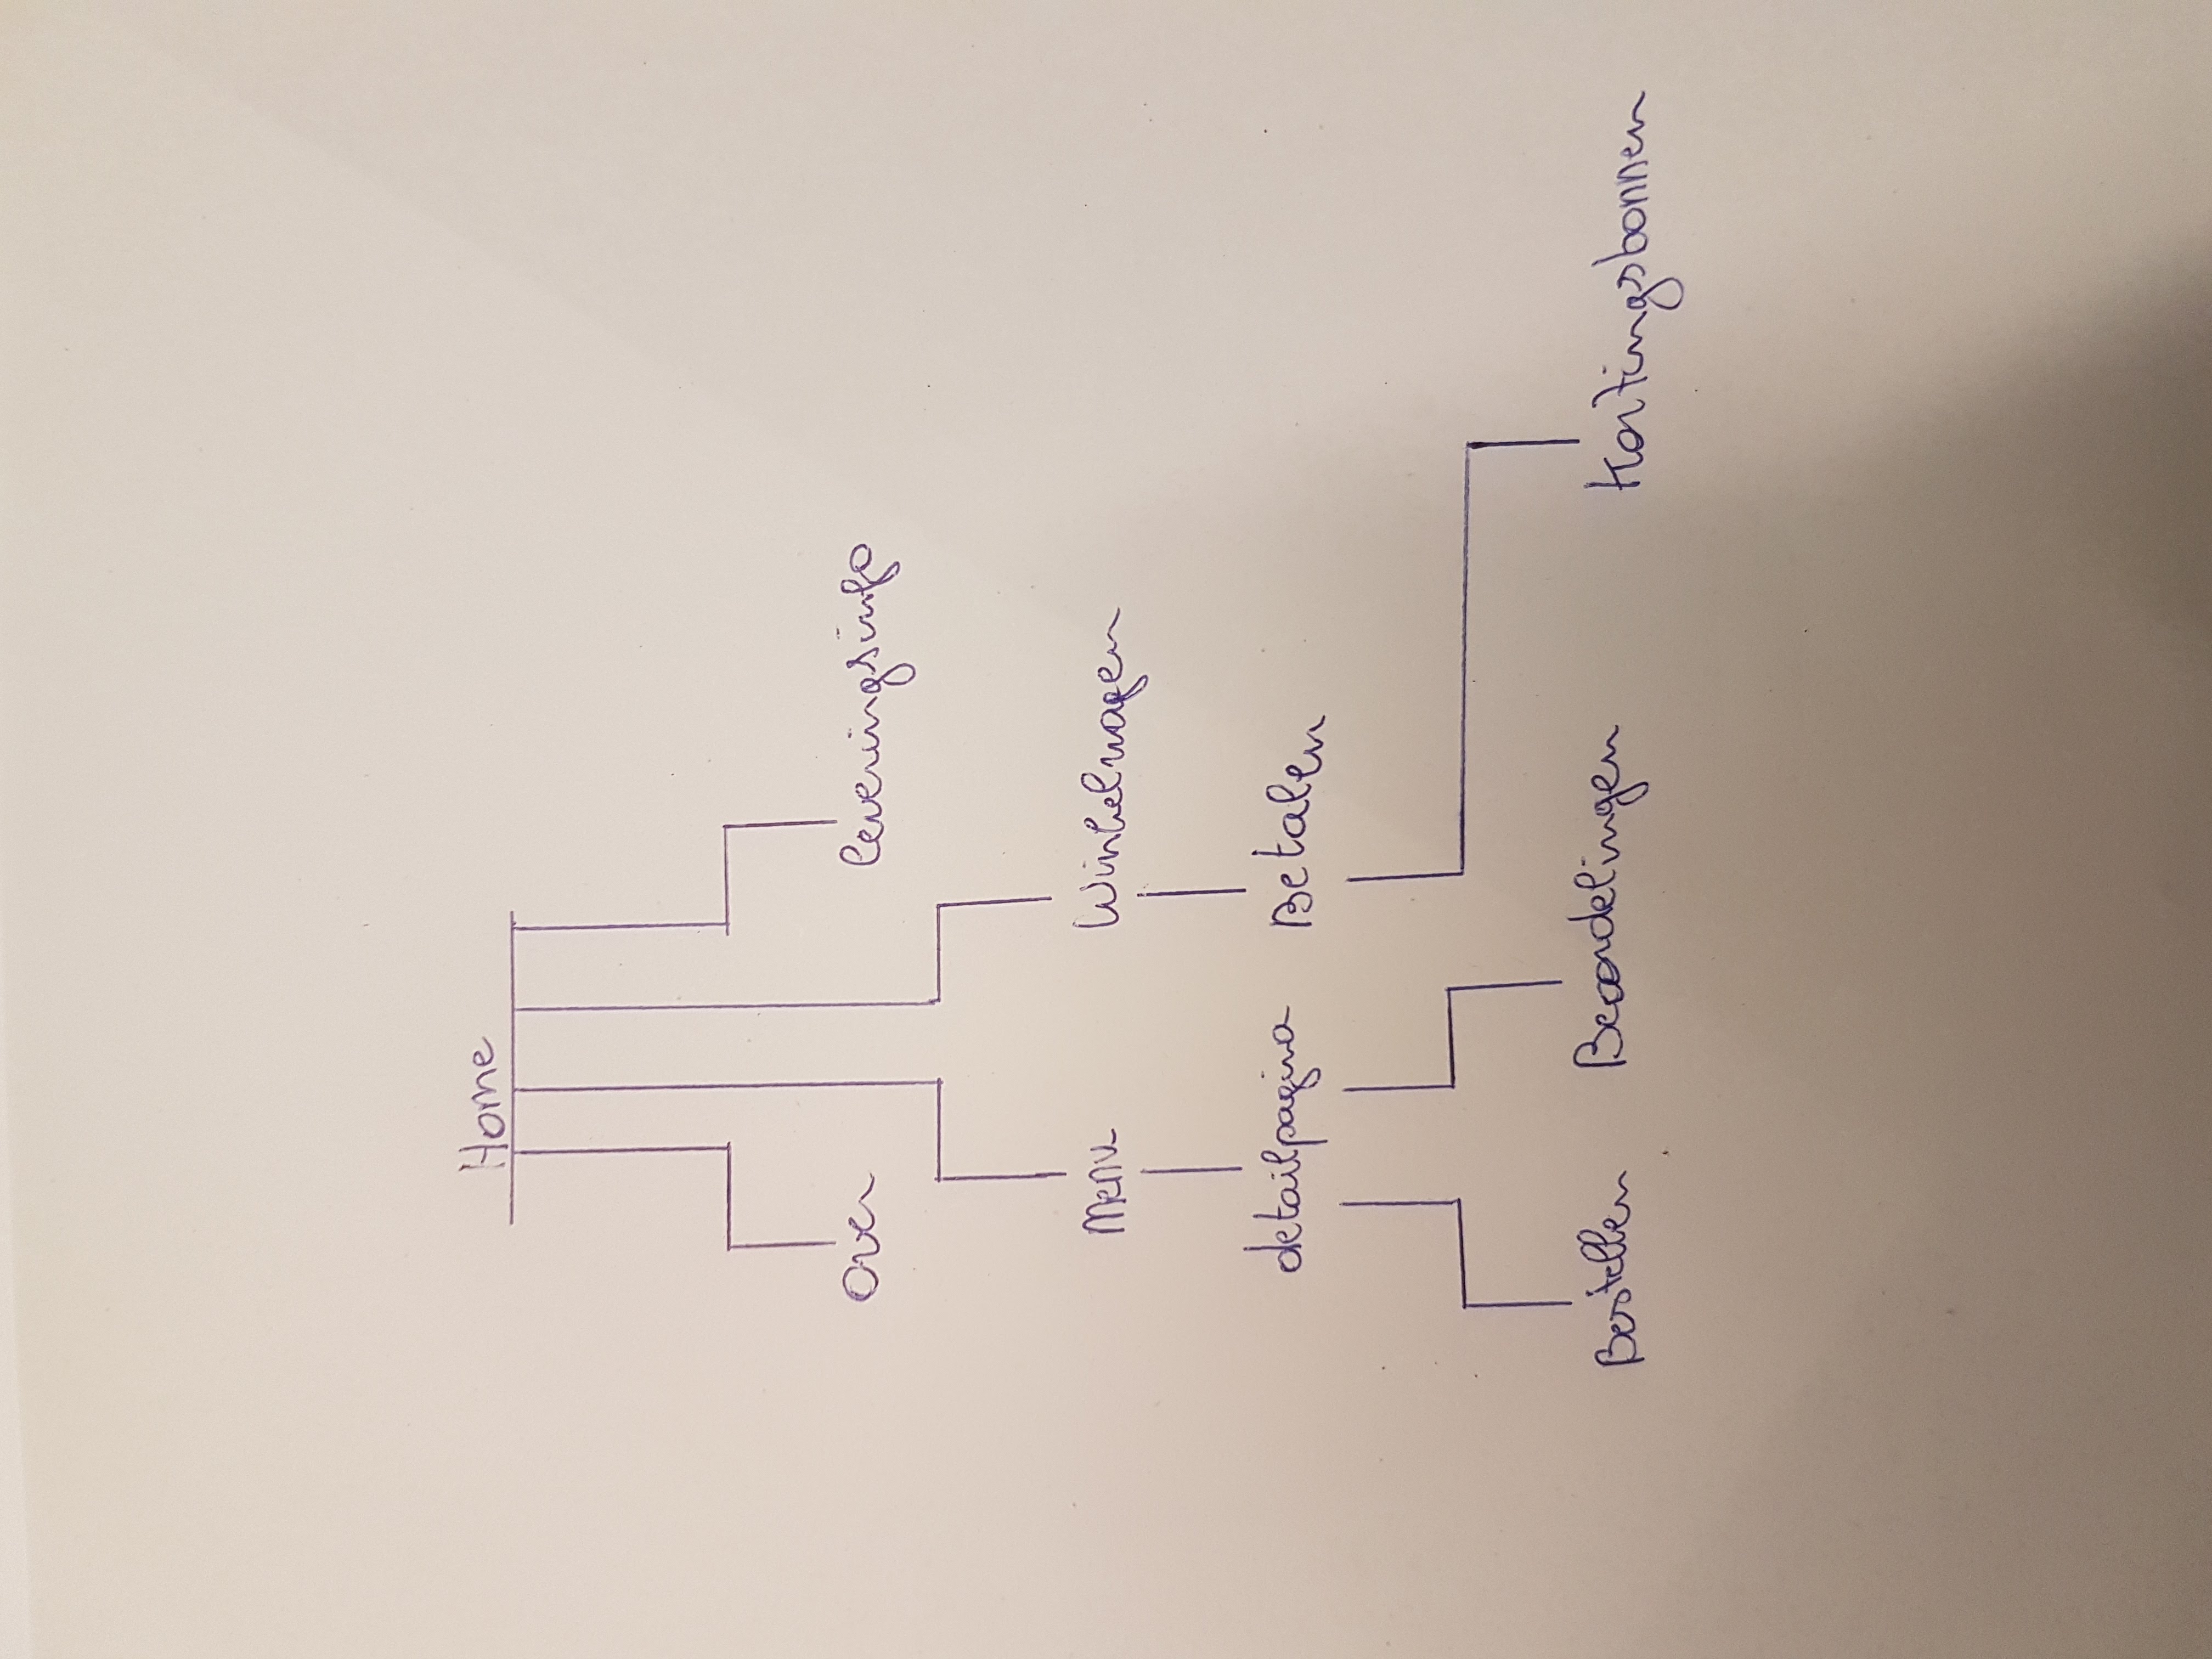 Home
Over
leveringsinfo
Menu
Winkelwagen
detailpagina
Betalen
Bestellen
Beoordelingen
Kortingsbonnen